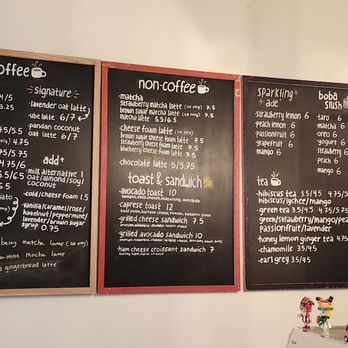 offee
signature
lavender oat latte
6/7
ube latte 6/7
pandan coconut
oat latte 6/7
add+
milk alternative 1
oat/almond/soy/
coconut
cold/cheese foam 1.5
vanilla/caramel/rose/
hazelnut/peppermint
/lavender/brown sugar
syrup 0.75
matcha latte
mint mocha latte
gingerbread latte
non-coffee
·matcha
strawberry matcha latte (ice only) 7.5
brown sugar matcha latte (ice only) 7.5
matcha latte 5.5/6.5
·cheese foam latte (ice only)
brown sugar cheese foam latte 7.5
strawberry cheese foam latte 7.5
blueberry cheese foam latte 7.5
·chocolate latte 5/5.75
toast & sandwich
·avocado toast 10
·caprese toast 12
·grilled cheese sandwich 7.5
·grilled avocado sandwich 10
·ham cheese croissant sandwich 7
sparkling
ade
·strawberry lemon 6
·peach lemon 6
·passionfruit 6
·grapefruit 6
·mango 6
boba
slush
·taro
·matcha
·oreo
·yogurt
·strawb
·peach
·mango
tea
·hibiscus tea 3.5/4.5 4.75/5.75
hibiscus/lychee/mango
·green tea 3.5/4.5 4.75/5.75
green/strawberry/mango/pea
passionfruit/lavender
·honey lemon ginger tea 4.75
·chamomile 3.5/4.5
·earl grey 3.5/4.5